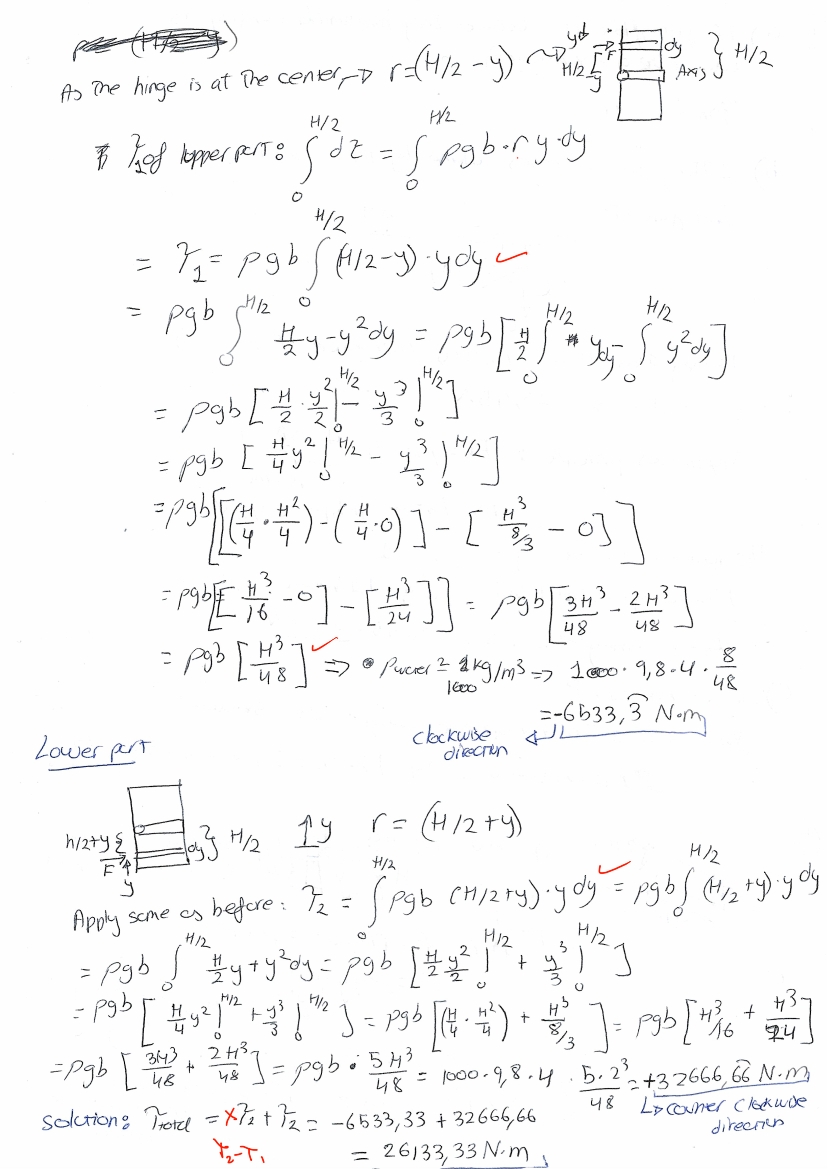 As the hinge is at the center → r=(H/2 − y)
yd
F
H/2
y
dy
Axis
H/2
τ₁ of upper part: ∫₀^{H/2} dτ = ∫₀^{H/2} ρgb·r y·dy
= τ₁ = ρgb ∫₀^{H/2} (H/2−y)·ydy ✓
= ρgb ∫₀^{H/2} H/2 y−y²dy = ρgb [H/2 ∫₀^{H/2} ydy − ∫₀^{H/2} y²dy]
= ρgb [H/2 · y²/2 |₀^{H/2} − y³/3 |₀^{H/2}]
= ρgb [H/4 y² |₀^{H/2} − y³/3 |₀^{H/2}]
= ρgb [[(H/4 · H²/4) − (H/4 · 0)] − [H³/8/3 − 0]]
= ρgb [[H³/16 − 0] − [H³/24]] = ρgb [3H³/48 − 2H³/48]
= ρgb [H³/48] ✓ ⇒ ρwater = 1000 kg/m³ ⇒ 1000 · 9,8 · 4 · 8/48
= −6533,3 N·m
clockwise direction
Lower part
h/2+y
F
y
dy
H/2
↑y r = (H/2+y)
Apply same as before: τ₂ = ∫₀^{H/2} ρgb (H/2+y)·ydy ✓ = ρgb ∫₀^{H/2} (H/2+y)·ydy
= ρgb ∫₀^{H/2} H/2 y+y²dy = ρgb [H/2 y²/2 |₀^{H/2} + y³/3 |₀^{H/2}]
= ρgb [H/4 y² |₀^{H/2} + y³/3 |₀^{H/2}] = ρgb [(H/4 · H²/4) + H³/8/3] = ρgb [H³/16 + H³/24]
= ρgb [3H³/48 + 2H³/48] = ρgb · 5H³/48 = 1000·9,8·4 · 5·2³/48 = +32666,66 N·m
counter clockwise direction
Solution: τtotal = τ₂ + τ₂ = −6533,33 + 32666,66
τ₂−τ₁
= 26133,33 N·m